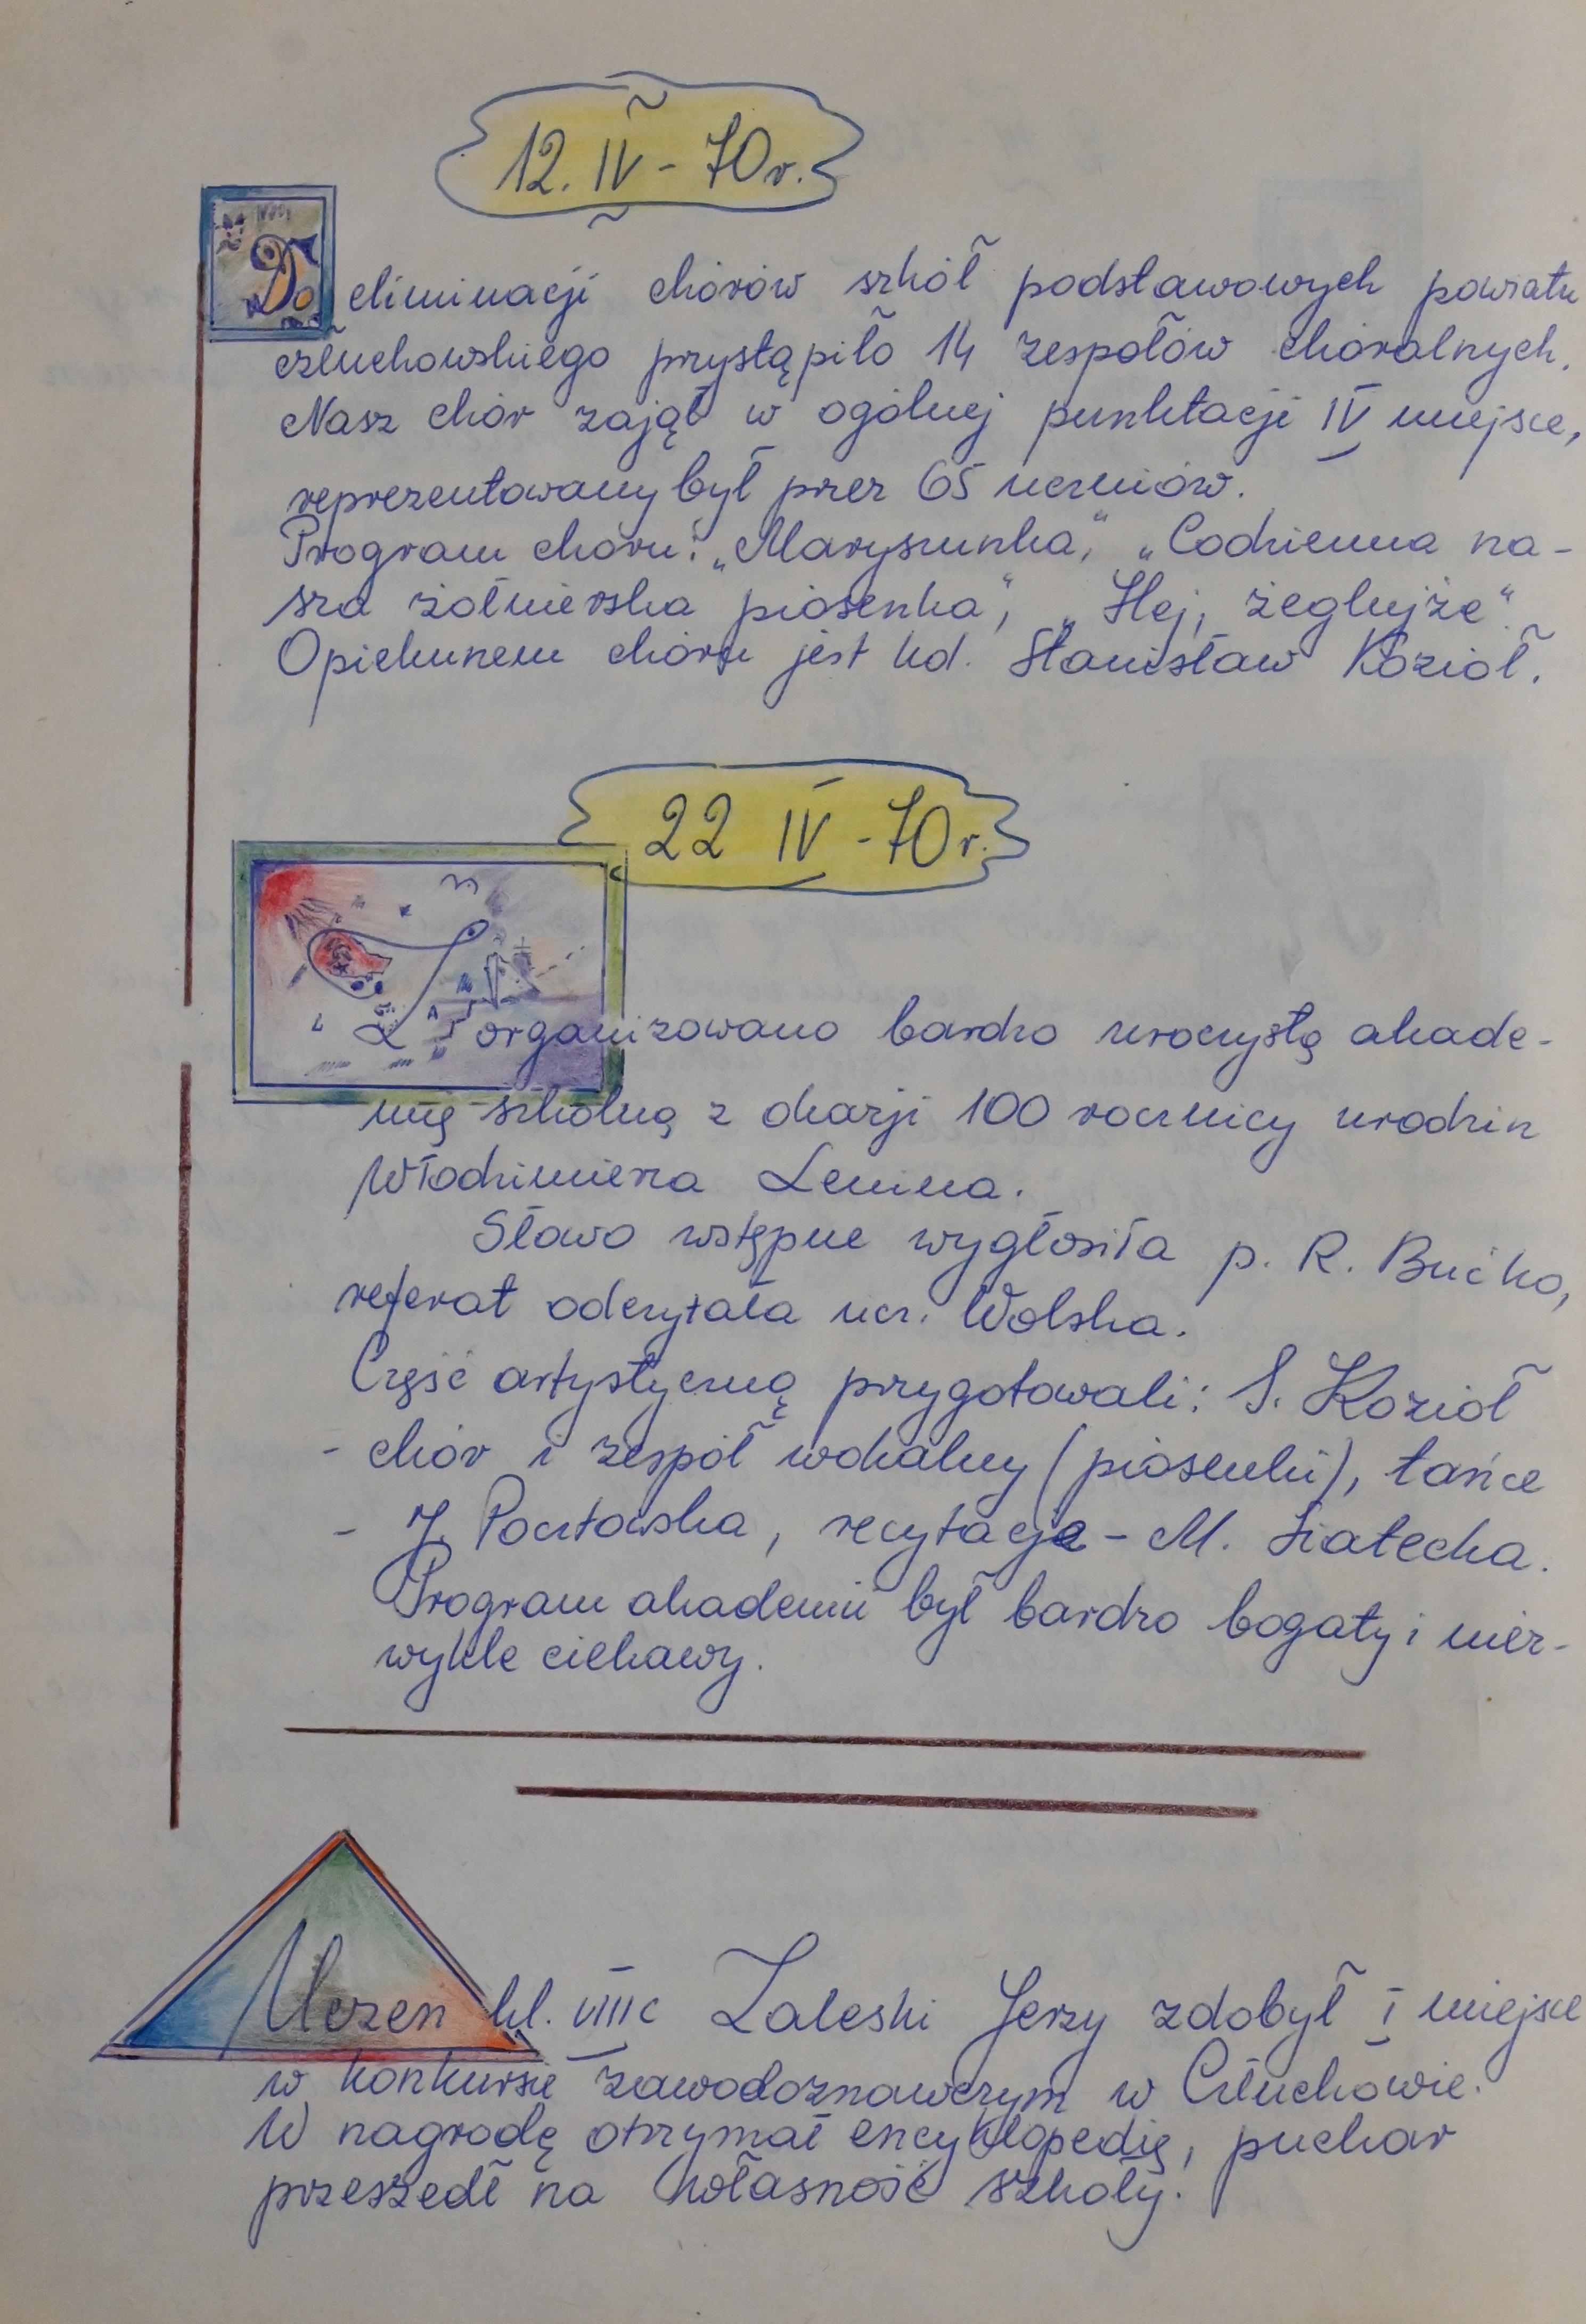 12. IV - 70 r.
Do eliminacji chórów szkół podstawowych powiatu
człuchowskiego przystąpiło 14 zespołów chóralnych.
Nasz chór zajął w ogólnej punktacji IV miejsce,
reprezentowany był przez 65 uczniów.
Program chóru: „Maryszunka", „Codzienna na-
sza żołnierska piosenka", „Hej, żeglujże".
Opiekunem chóru jest kol. Stanisław Kozioł.
22 IV - 70 r.
Zorganizowano bardzo uroczystą akade-
mię szkolną z okazji 100 rocznicy urodzin
Włodzimierza Lenina.
Słowo wstępne wygłosiła p. R. Bućko,
referat odczytała ucz. Wolska.
Część artystyczną przygotowali: S. Kozioł
- chór i zespół wokalny (piosenki), tańce
- J. Pocztowska, recytacje - M.
Program akademii był bardzo bogaty i niez-
wykle ciekawy.
Uczeń kl. VIIIc Zaleski Jerzy zdobył I miejsce
w konkursie zawodoznawczym w Człuchowie.
W nagrodę otrzymał encyklopedię, puchar
przeszedł na własność szkoły.